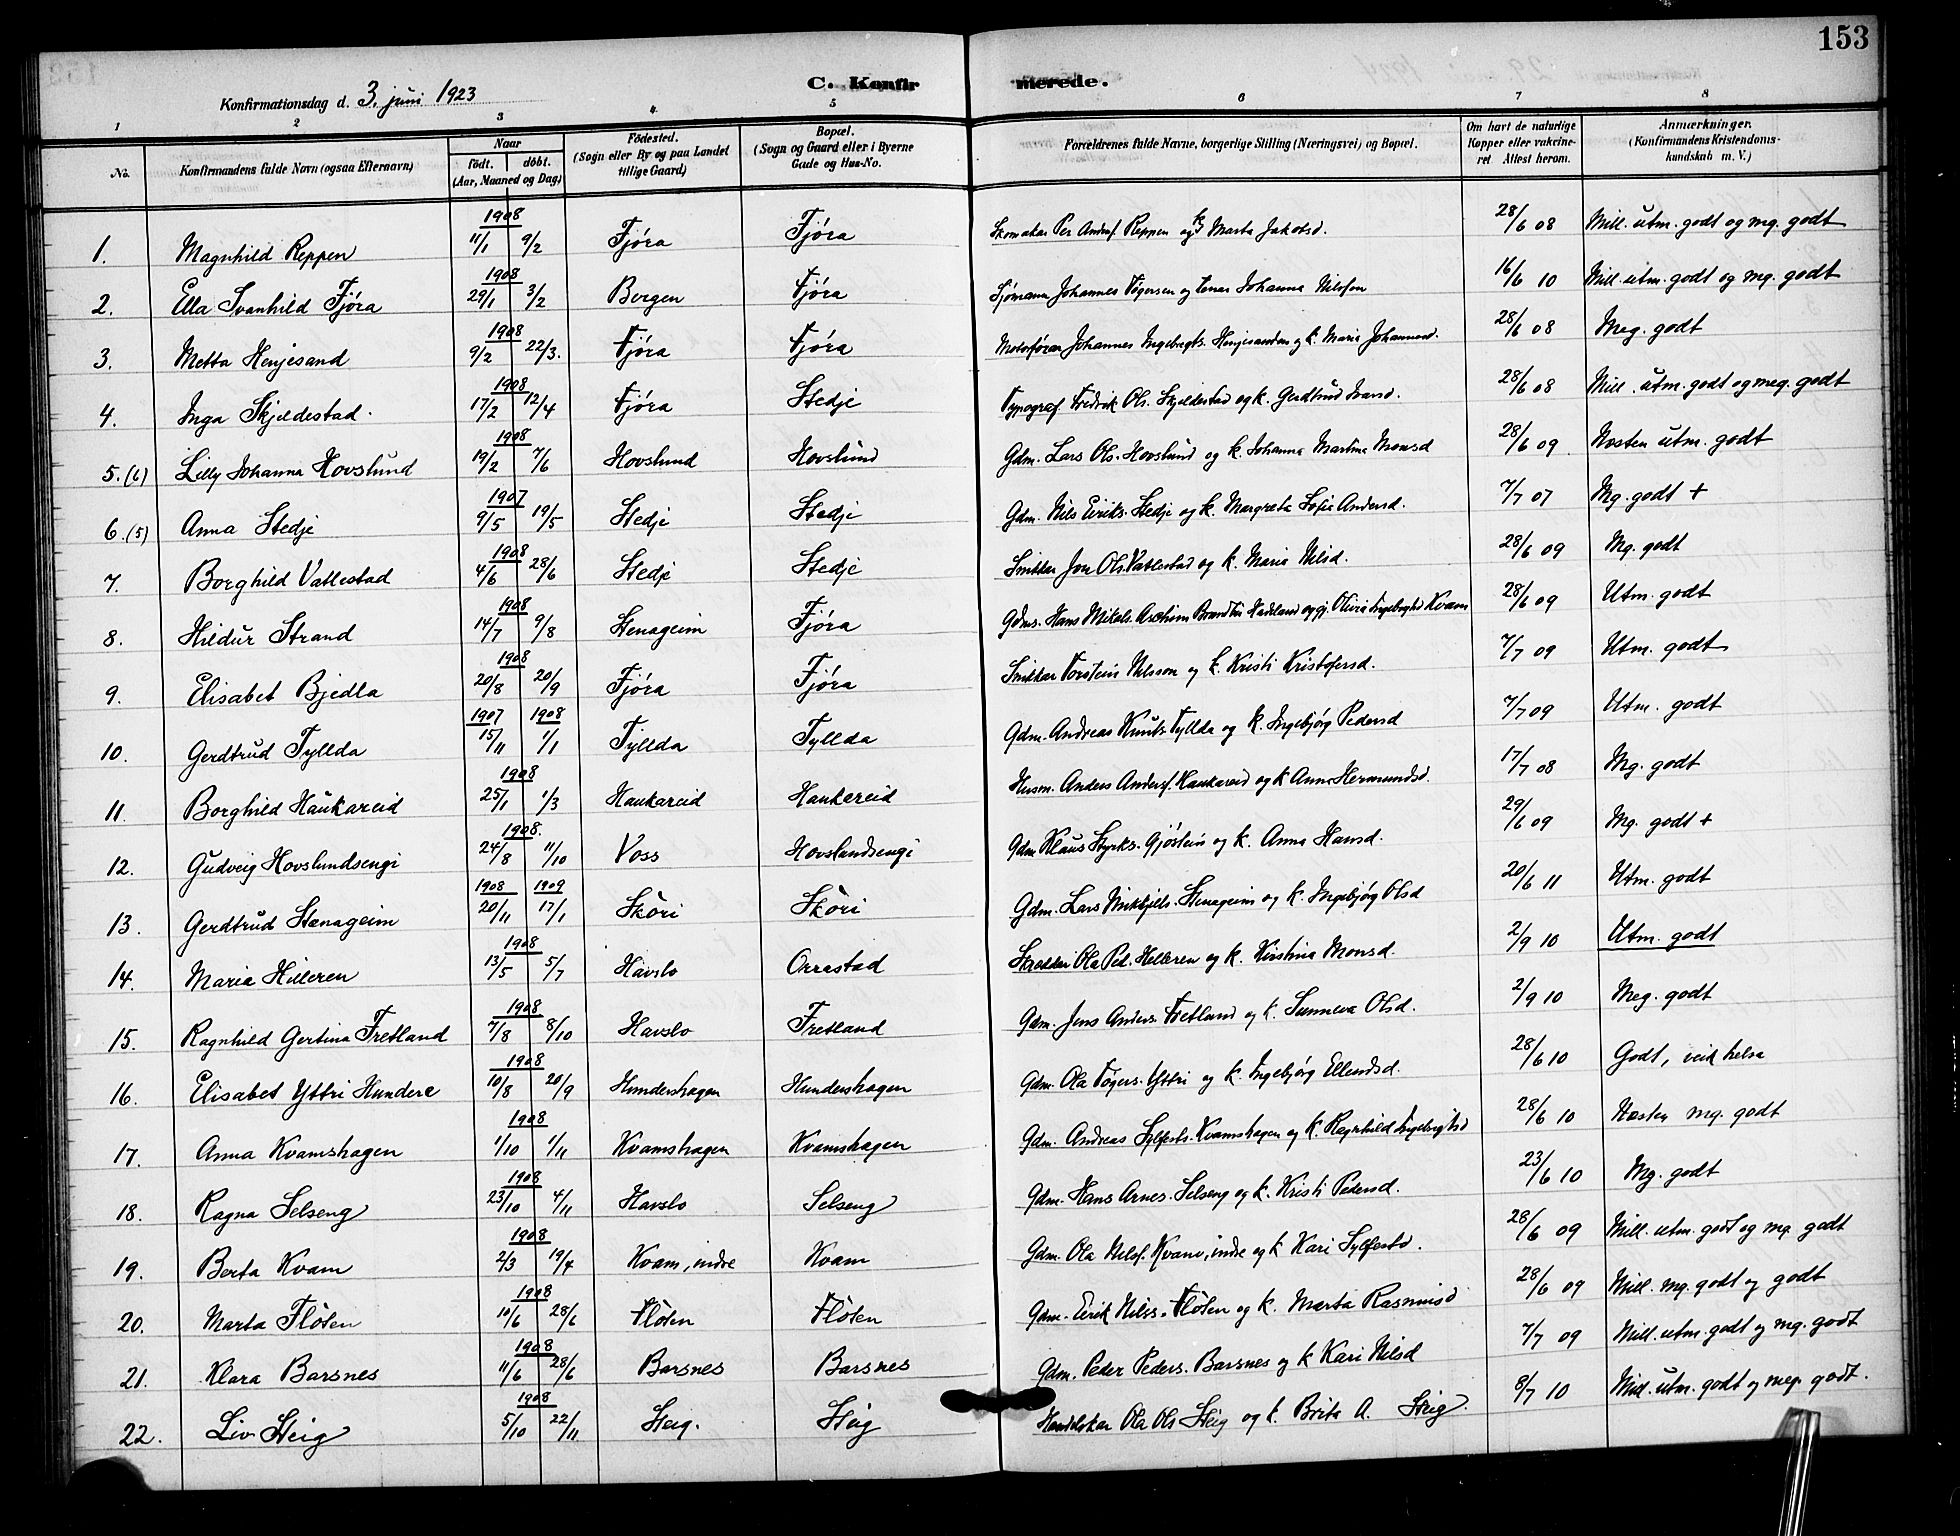 153
Konfirmationsdag d. 3. juni 1923
C. Konfirmerede.
1 2 3 4 5 6 7 8
No. Konfirmandens fulde Navn (ogsaa Efternavn) Naar født. døbt. (Aar, Maaned og Dag) Fødested. (Sogn eller By og paa Landet tillige Gaard) Bopæl. (Sogn og Gaard eller i Byerne Gade og Hus-No. Forældrenes fulde Navne, borgerlige Stilling (Næringsvei) og Bopæl. Om havt de naturlige Kopper eller vakcineret Attest herom. Anmærkninger. (Konfirmandens Kristendomskundskab m. V.)
1. Magnhild Reppen 1908 11/1 9/2 Fjöra Fjöra Skomakar Per Andrs. Reppen og k Marta Jakobsd. 28/6 08 Mill. utm. godt og mg. godt
2. Ella Svanhild Fjöra 1908 29/1 3/2 Bergen Fjöra Sjömann Johannes Vögersen og Johanna Nilsen 16/6 10 Mill. utm. godt og mg. godt
3. Metta Henjesand 1908 9/2 22/3. Fjöra Fjöra Motorförar Johannes Ingebrigts. Henjesanden og k. Maria Johannesd. 28/6 08 Meg. godt
4. Inga Skjeldestad. 1908 17/2 12/4 Fjöra Stedje Typograf Fredrik Ols. Skjeldestad og k. Gerdtrud Ivarsd. 28/6 08 Mill. utm. godt og meg. godt
5. (6) Lilly Johanna Hovslund 1908 19/2 7/6 Hovslund Hovslund Gdm. Lars Ols. Hovslund og k. Johanna Martina Monsd 28/6 09. Næsten utm. godt
6. (5) Anna Stedje 1907 9/5 19/5 Stedje Stedje Gdm. Nils Eiriks. Stedje og k. Margreta Sofie Andersd. 7/7 07 Mg. godt +
7. Borghild Vatlestad 1908 4/6 28/6 Stedje Stedje Snikkar Jon Ols. Vatlestad og k. Maria Nilsd. 28/6 09 Mg. godt
8. Hildur Strand 1908 14/7 9/8 Stenageim Fjöra Gdms. Hans Mikals. Hadland og gj. Olivia Ingebrigtsd Kvam 28/6 09 Utm. godt
9. Elisabet Bjedla 1908 20/8 20/9 Fjöra Fjöra Snikkar Torstein Nilsson og k. Kristi Kristofersd. 7/7 09 Utm. godt
10. Gerdtrud Tyllda 1907 15/11 1908 1/1 Tyllda Tyllda Gdm. Andreas Knuts. Tyllda og k. Ingebjörg Pedersd 7/7 09 Utm. godt
11. Borghild Haukareid 1908 25/1 1/3 Haukareid Haukareid Husm. Anders Anders. Haukareid og k Anna Hermundsd. 17/7 08 Mg. godt
12. Gudveig Hovslundsengi 1908. 24/8 11/10 Voss Hovslandsengi Gdm Klaus Styrks. Gjöstein og k. Anna Hansd. 29/6 09 Mg. godt +
13. Gerdtrud Stænageim 1908 20/11 1909 17/1 Sköri Sköri Gdm. Lars Mikkjels. Stenageim og k. Ingebjörg Olsd 20/6 11 Utm. godt
14. Maria Hilleren 1908 13/5 5/7 Havslo Orrestad Skreddar Ola Ped. Helleren og k. Kristina Monsd. 2/9 10 Utm. godt
15. Ragnhild Gertina Fretland 1908 7/8 8/10 Havslo Fretland Gdm. Jens Anders. Fretland og k. Sunneva Olsd. 2/9 10 Meg. godt
16. Elisabet Yttri Hundere 1908 10/8 20/9 Hundershagen Hundershagen Gdm. Ola Vögers. Yttri og k. Ingebjörg Ellendsd. 28/6 10 Godt, veik helsa
17. Anna Kvamshagen 1908 1/10 1/11 Kvamshagen Kvamshagen Gdm. Andreas Sylfests. Kvamshagen og k. Ragnhild Ingebrigtsd 28/6 10 Næsten mg. godt
18. Ragna Selseng 1908 23/10 4/11 Havslo Selseng Gdm. Hans Arnes. Selseng og k. Kristi Pedersd. 23/6 10 Mg. godt
19. Berta Kvam 1908 2/3 19/4 Kvam, indre Kvam Gdm. Ola Nilss. Kvam, indre og k Kari Sylfestd. 28/6 09 Mill. utm. godt og mg. godt
20. Marta Flöten 1908 10/6 28/6 Flöten Flöten Gdm. Eirik Nilss. Flöten og k. Marta Rasmusd 28/6 09 Mill. mg. godt og godt
21. Klara Barsnes 1908 11/6 28/6 Barsnes Barsnes Gdm. Peder Peders. Barsnes og k Kari Nilsd 7/7 09 Mill. utm. godt og mg. godt
22. Liv Steig 1908 5/10 22/11 Steig. Steig Handelskar Ola Ols Steig og k. Brita A. Steig. 8/7 10 Mill. utm. godt og meg. godt.